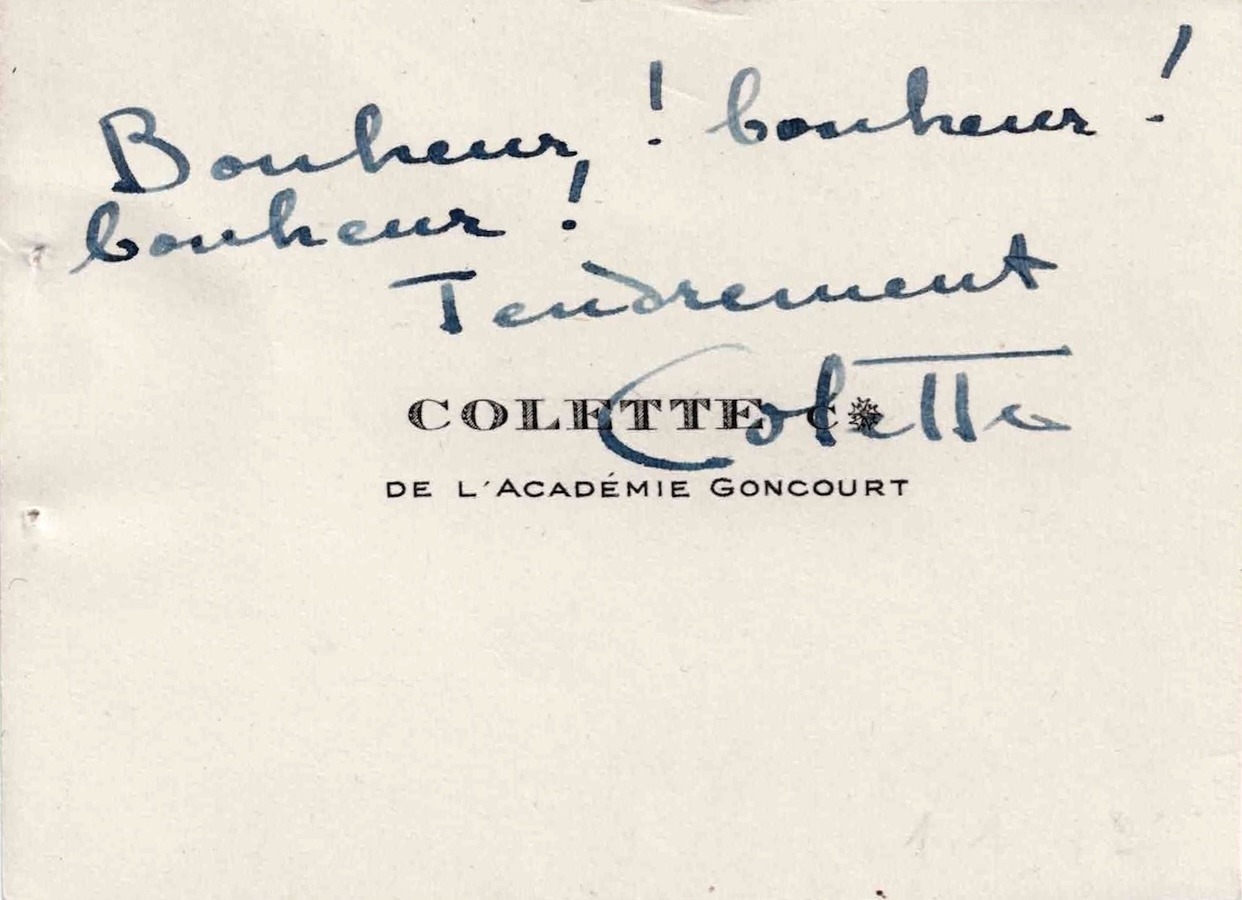 Bonheur ! bonheur !
bonheur !
Tendrement
Colette
COLETTE C
DE L'ACADÉMIE GONCOURT